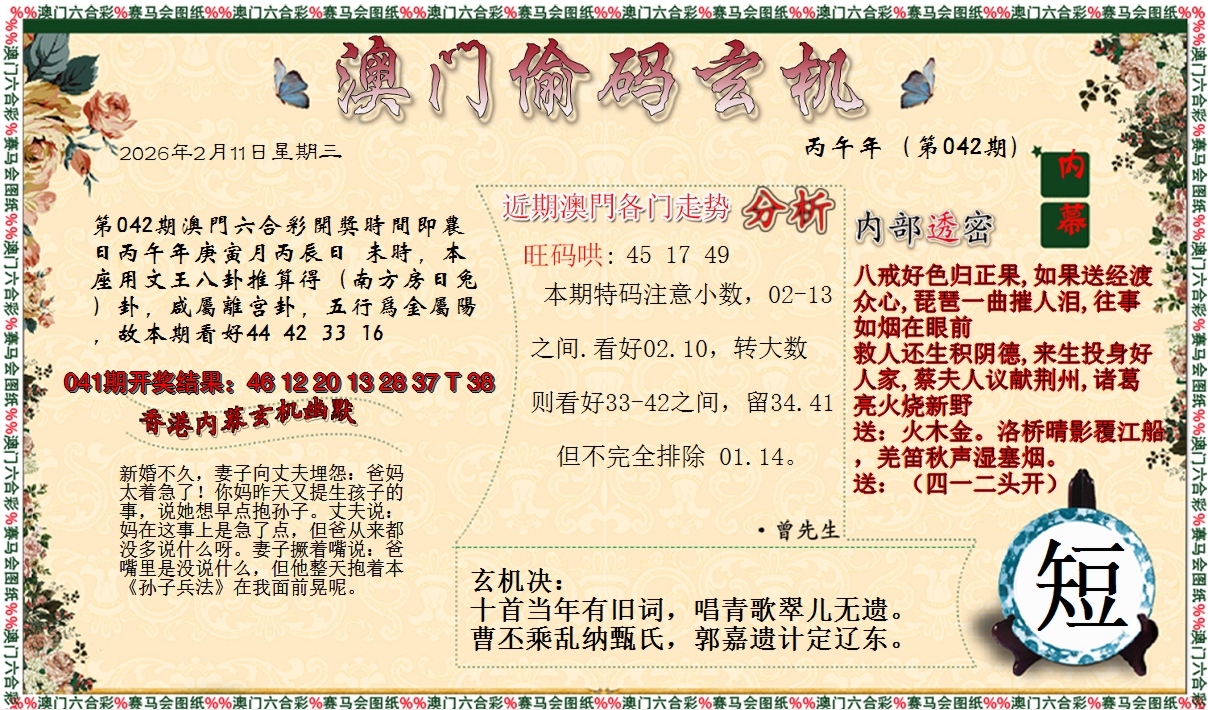 %%澳门六合彩%赛马会图纸%%澳门六合彩%赛马会图纸%%澳门六合彩%赛马会图纸%%澳门六合彩%赛马会图纸%%澳门六合彩%赛马会图纸%%澳门六合彩%赛马会图纸%%
澳门偷码玄机
2026年2月11日星期三
丙午年（第042期）
内幕
第042期澳門六合彩開獎時間即農
日丙午年庚寅月丙辰日 未時，本
座用文王八卦推算得（南方房日兔
）卦，咸屬離宮卦，五行爲金屬陽
，故本期看好44 42 33 16
041期开奖结果：46 12 20 13 28 37 T 38
香港内幕玄机幽默
新婚不久，妻子向丈夫埋怨：爸妈
太着急了！你妈昨天又提生孩子的
事，说她想早点抱孙子。丈夫说：
妈在这事上是急了点，但爸从来都
没多说什么呀。妻子撅着嘴说：爸
嘴里是没说什么，但他整天抱着本
《孙子兵法》在我面前晃呢。
近期澳門各门走势 分析
旺码哄: 45 17 49
本期特码注意小数，02-13
之间.看好02.10，转大数
则看好33-42之间，留34.41
但不完全排除 01.14。
·曾先生
内部透密
八戒好色归正果,如果送经渡
众心,琵琶一曲摧人泪,往事
如烟在眼前
救人还生积阴德,来生投身好
人家,蔡夫人议献荆州,诸葛
亮火烧新野
送：火木金。洛桥晴影覆江船
，羌笛秋声湿塞烟。
送：（四一二头开）
玄机决：
十首当年有旧词，唱青歌翠儿无遗。
曹丕乘乱纳甄氏，郭嘉遗计定辽东。
短
%%澳门六合彩%赛马会图纸%%澳门六合彩%赛马会图纸%%澳门六合彩%赛马会图纸%%澳门六合彩%赛马会图纸%%澳门六合彩%赛马会图纸%%澳门六合彩%赛马会图纸%%